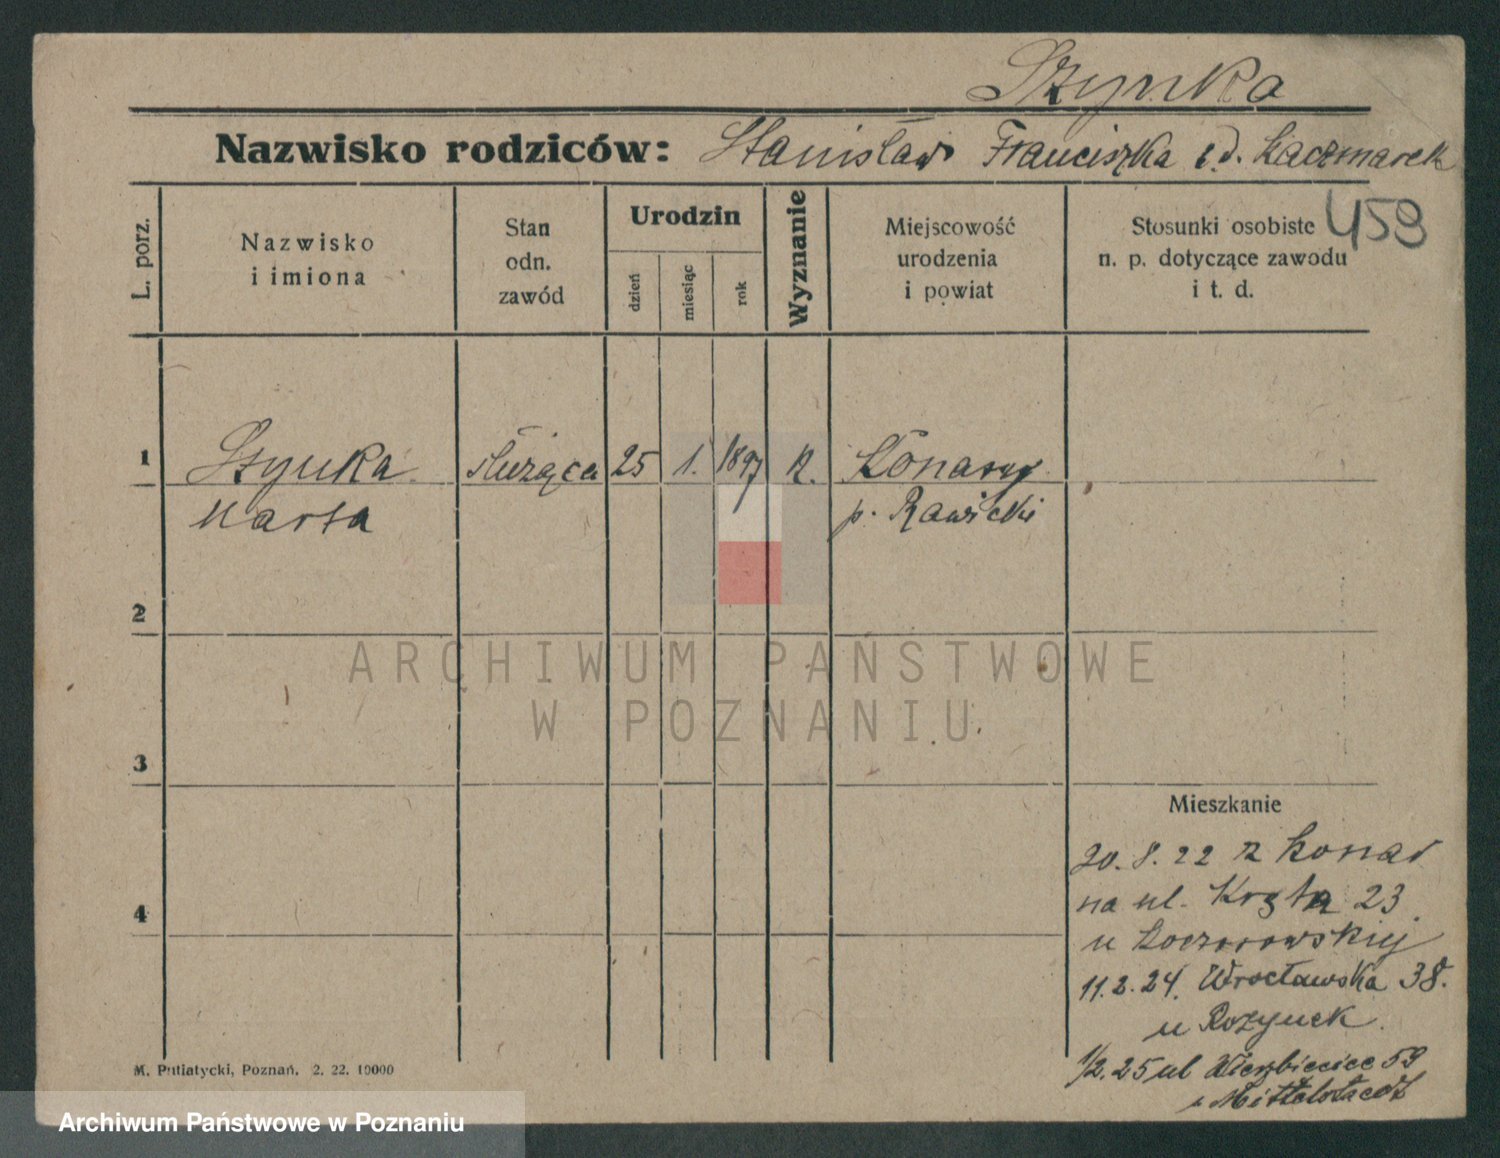 Szynka
Nazwisko rodziców: Stanisław Franciszka z d. Kaczmarek
459
L. porz.
Nazwisko
i imiona
Stan
odn.
zawód
Urodzin
dzień
miesiąc
rok
Wyznanie
Miejscowość
urodzenia
i powiat
Stosunki osobiste
n. p. dotyczące zawodu
i t. d.
1 Szynka służąca 25 1. 1897 k. Konary
Marta p. Rawicki
2
ARCHIWUM PAŃSTWOWE
W POZNANIU
3
Mieszkanie
20. 8. 22 z Konar
4
na ul. Kręta 23
u
11. 2. 24. Wrocławska 38.
u Rożynek
1/2. 25 ul Wierzbięcice 59
M. Putiatycki, Poznań. 2. 22. 10000
Archiwum Państwowe w Poznaniu